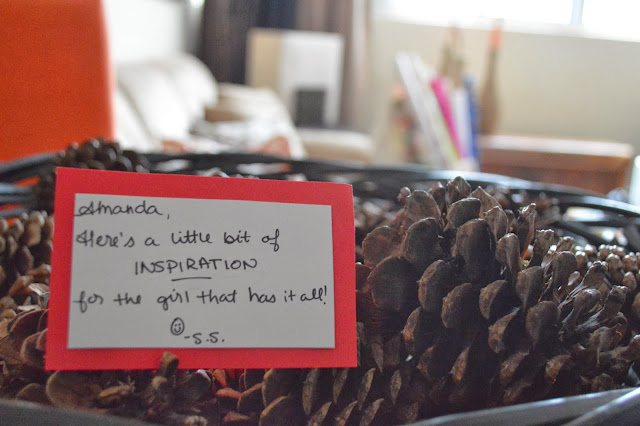 Amanda,
Here's a little bit of
INSPIRATION
for the girl that has it all!
☺
-S.S.